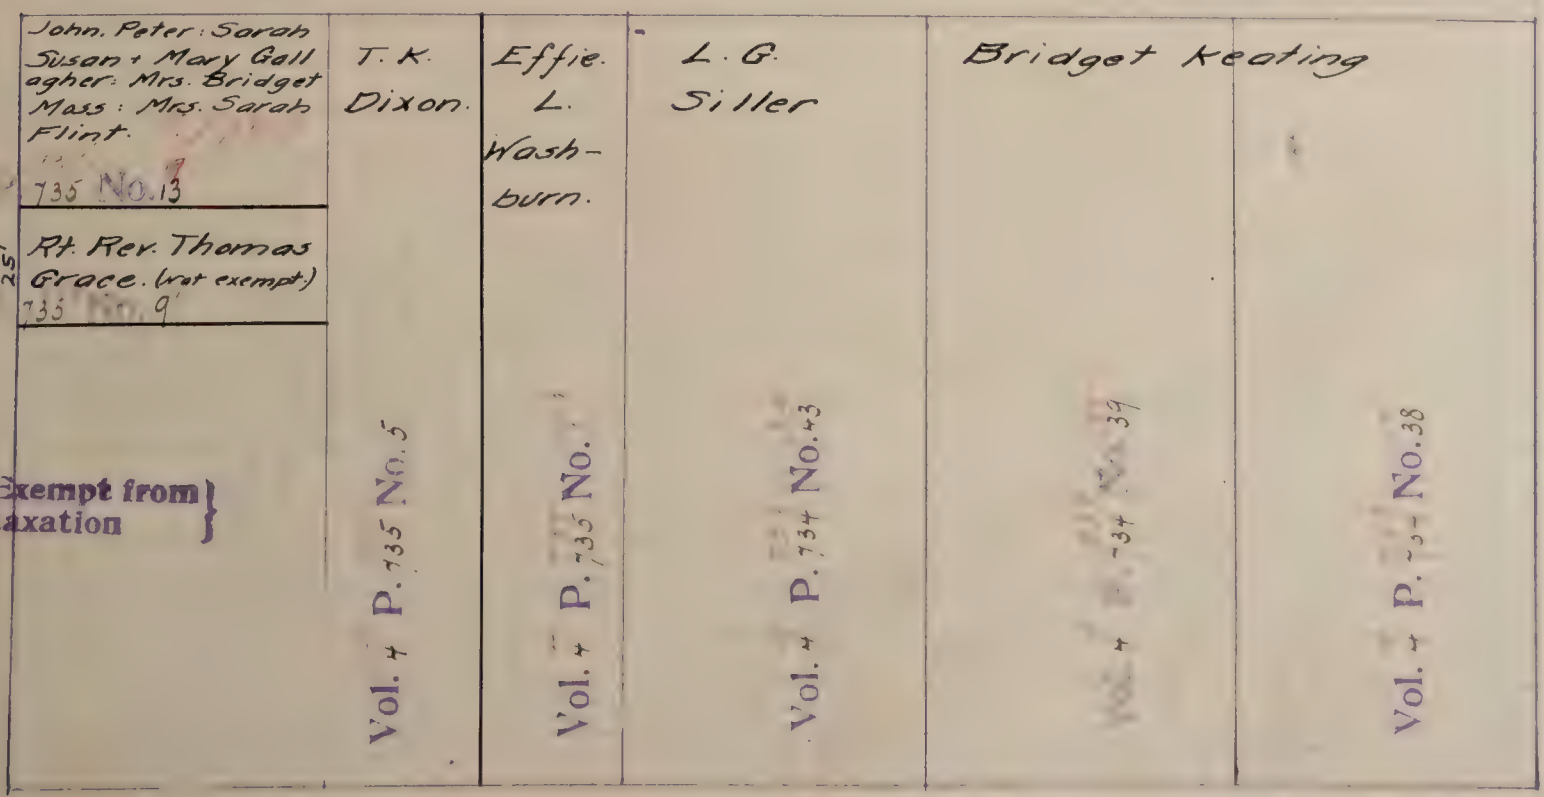 John. Peter: Sarah
Susan + Mary Gall
agher: Mrs. Bridget
Mass: Mrs. Sarah
Flint.
735 No. 13
25'
Rt. Rev. Thomas
Grace. (not exempt)
735 No. 9
Exempt from }
axation
T. K.
Dixon.
Vol. 4 P. 735 No. 5
Effie.
L.
Wash-
burn.
Vol. 4 P. 735 No.
L. G.
Siller
Vol. 4 P. 734 No. 43
Bridget Keating
Vol. 4 P. 734 No. 39
Vol. 4 P. No. 38